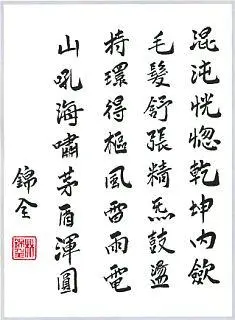 混沌恍惚乾坤內歛
毛髮舒張精炁鼓盪
持環得樞風雷雨電
山吼海嘯茅盾渾圓
錦全